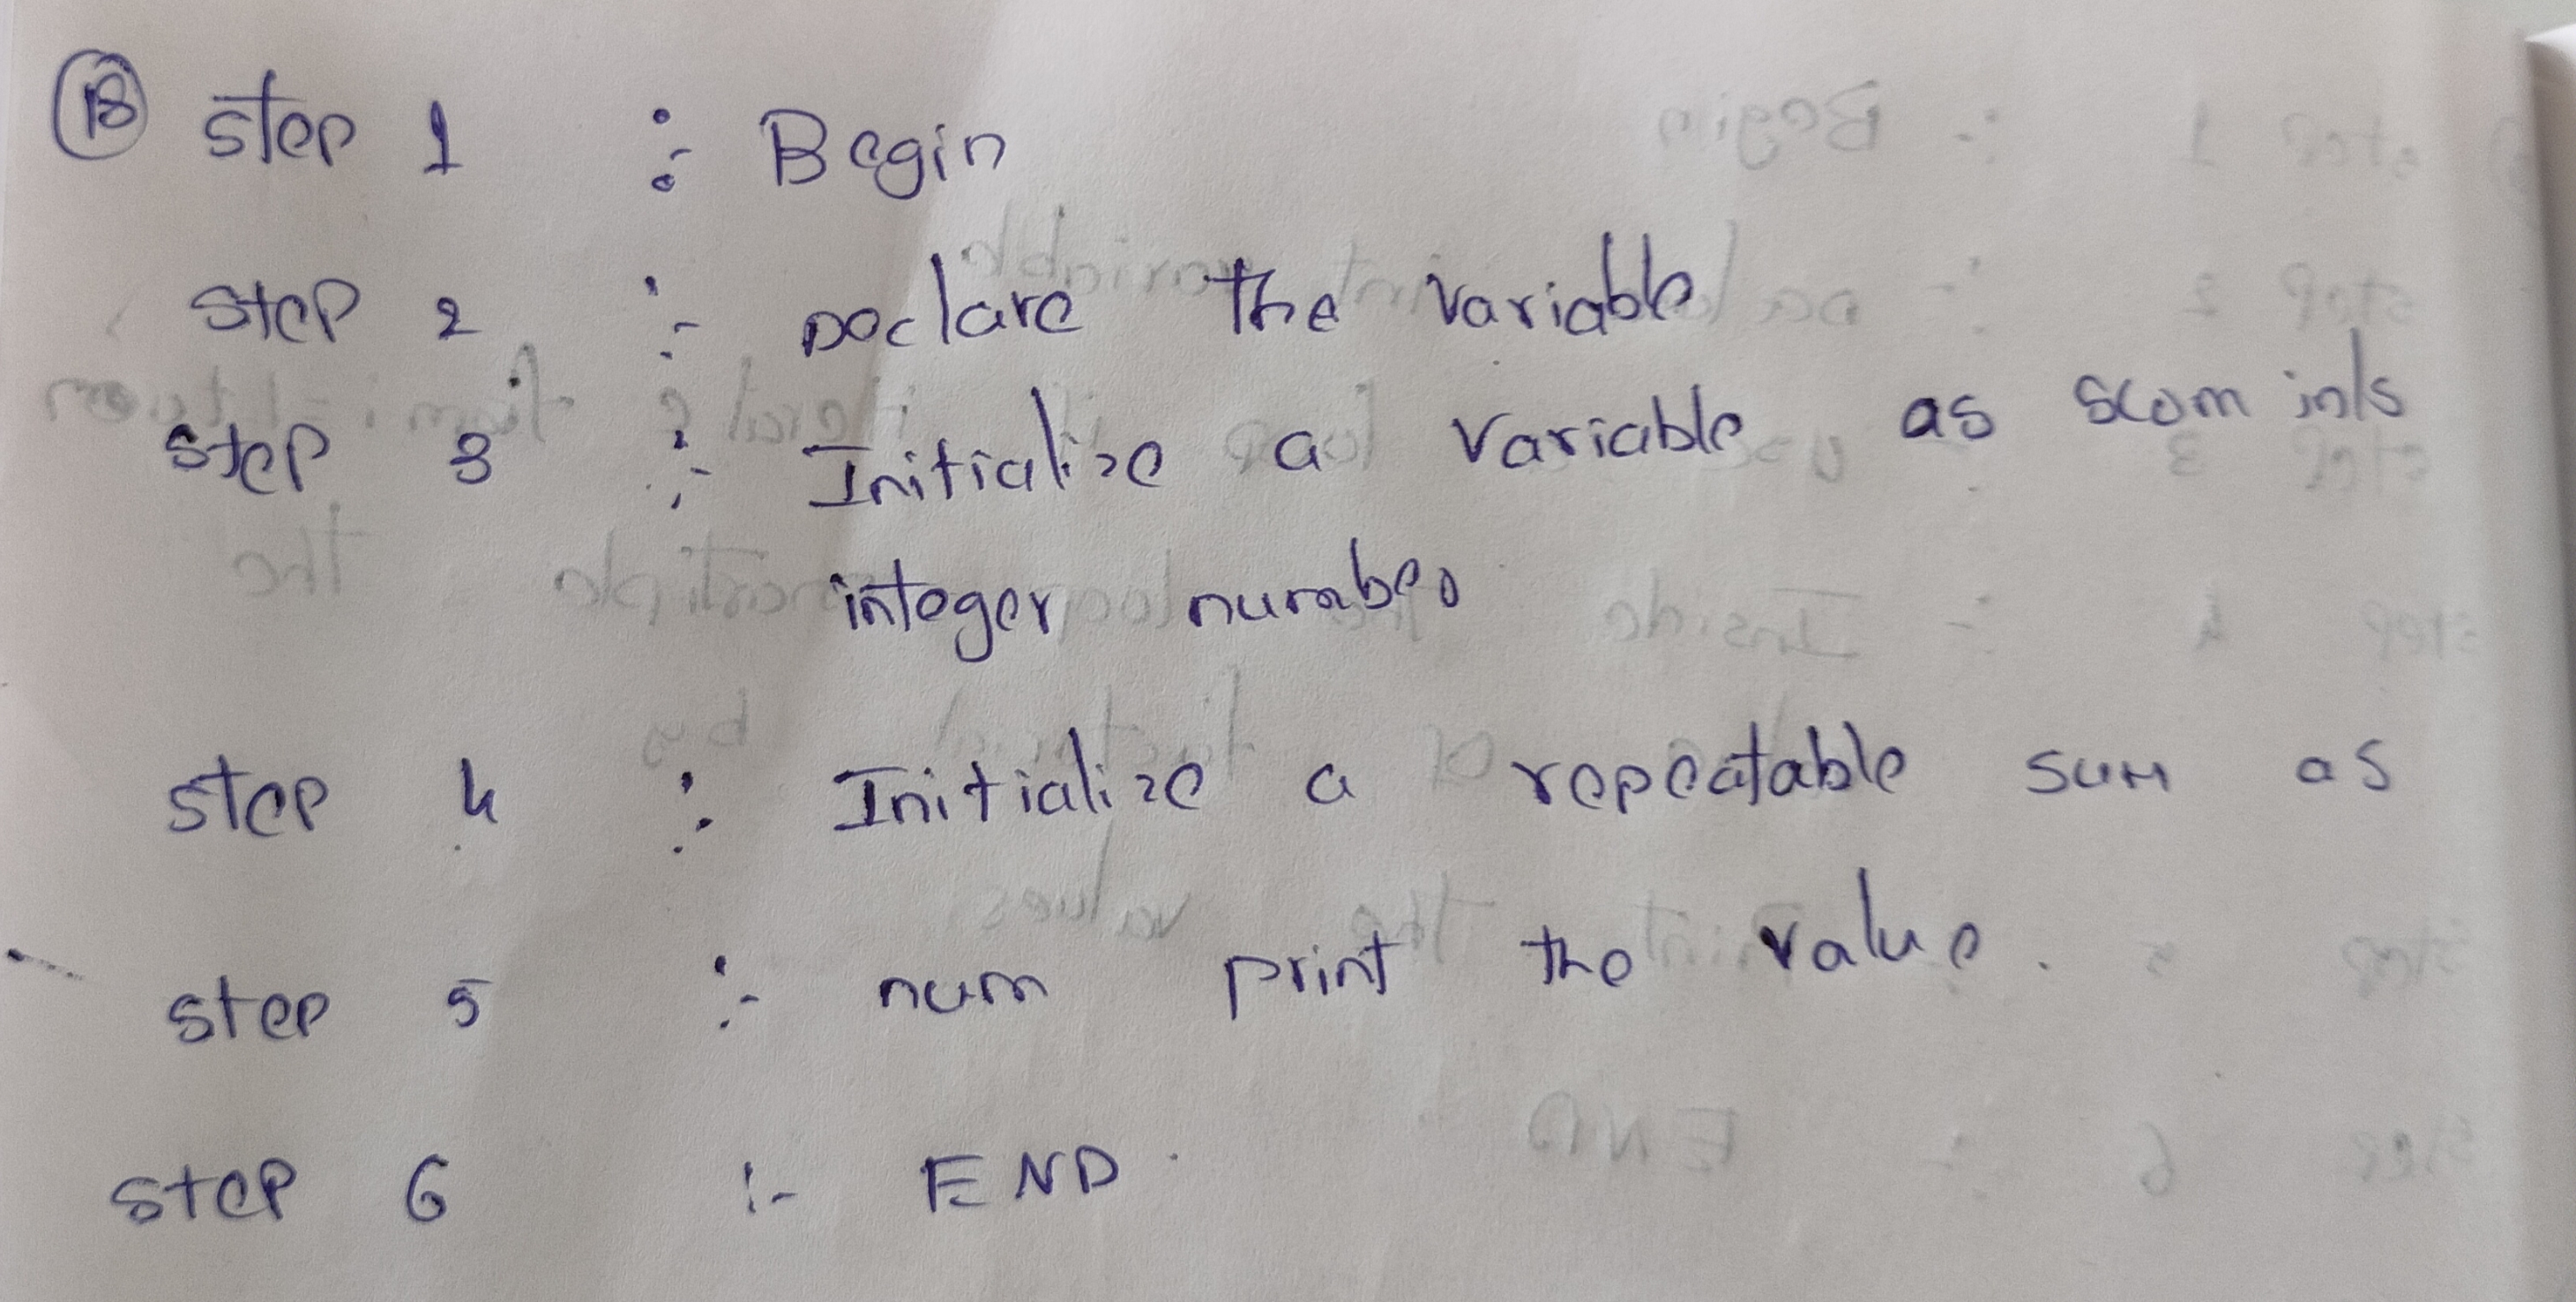 18 step 1 :- Begin
step 2 :- Declare the variable
step 3 :- Initialize a variable as
integer number
step 4 : Initialize a repeatable sum as
step 5 :- num print the value.
step 6 :- END.